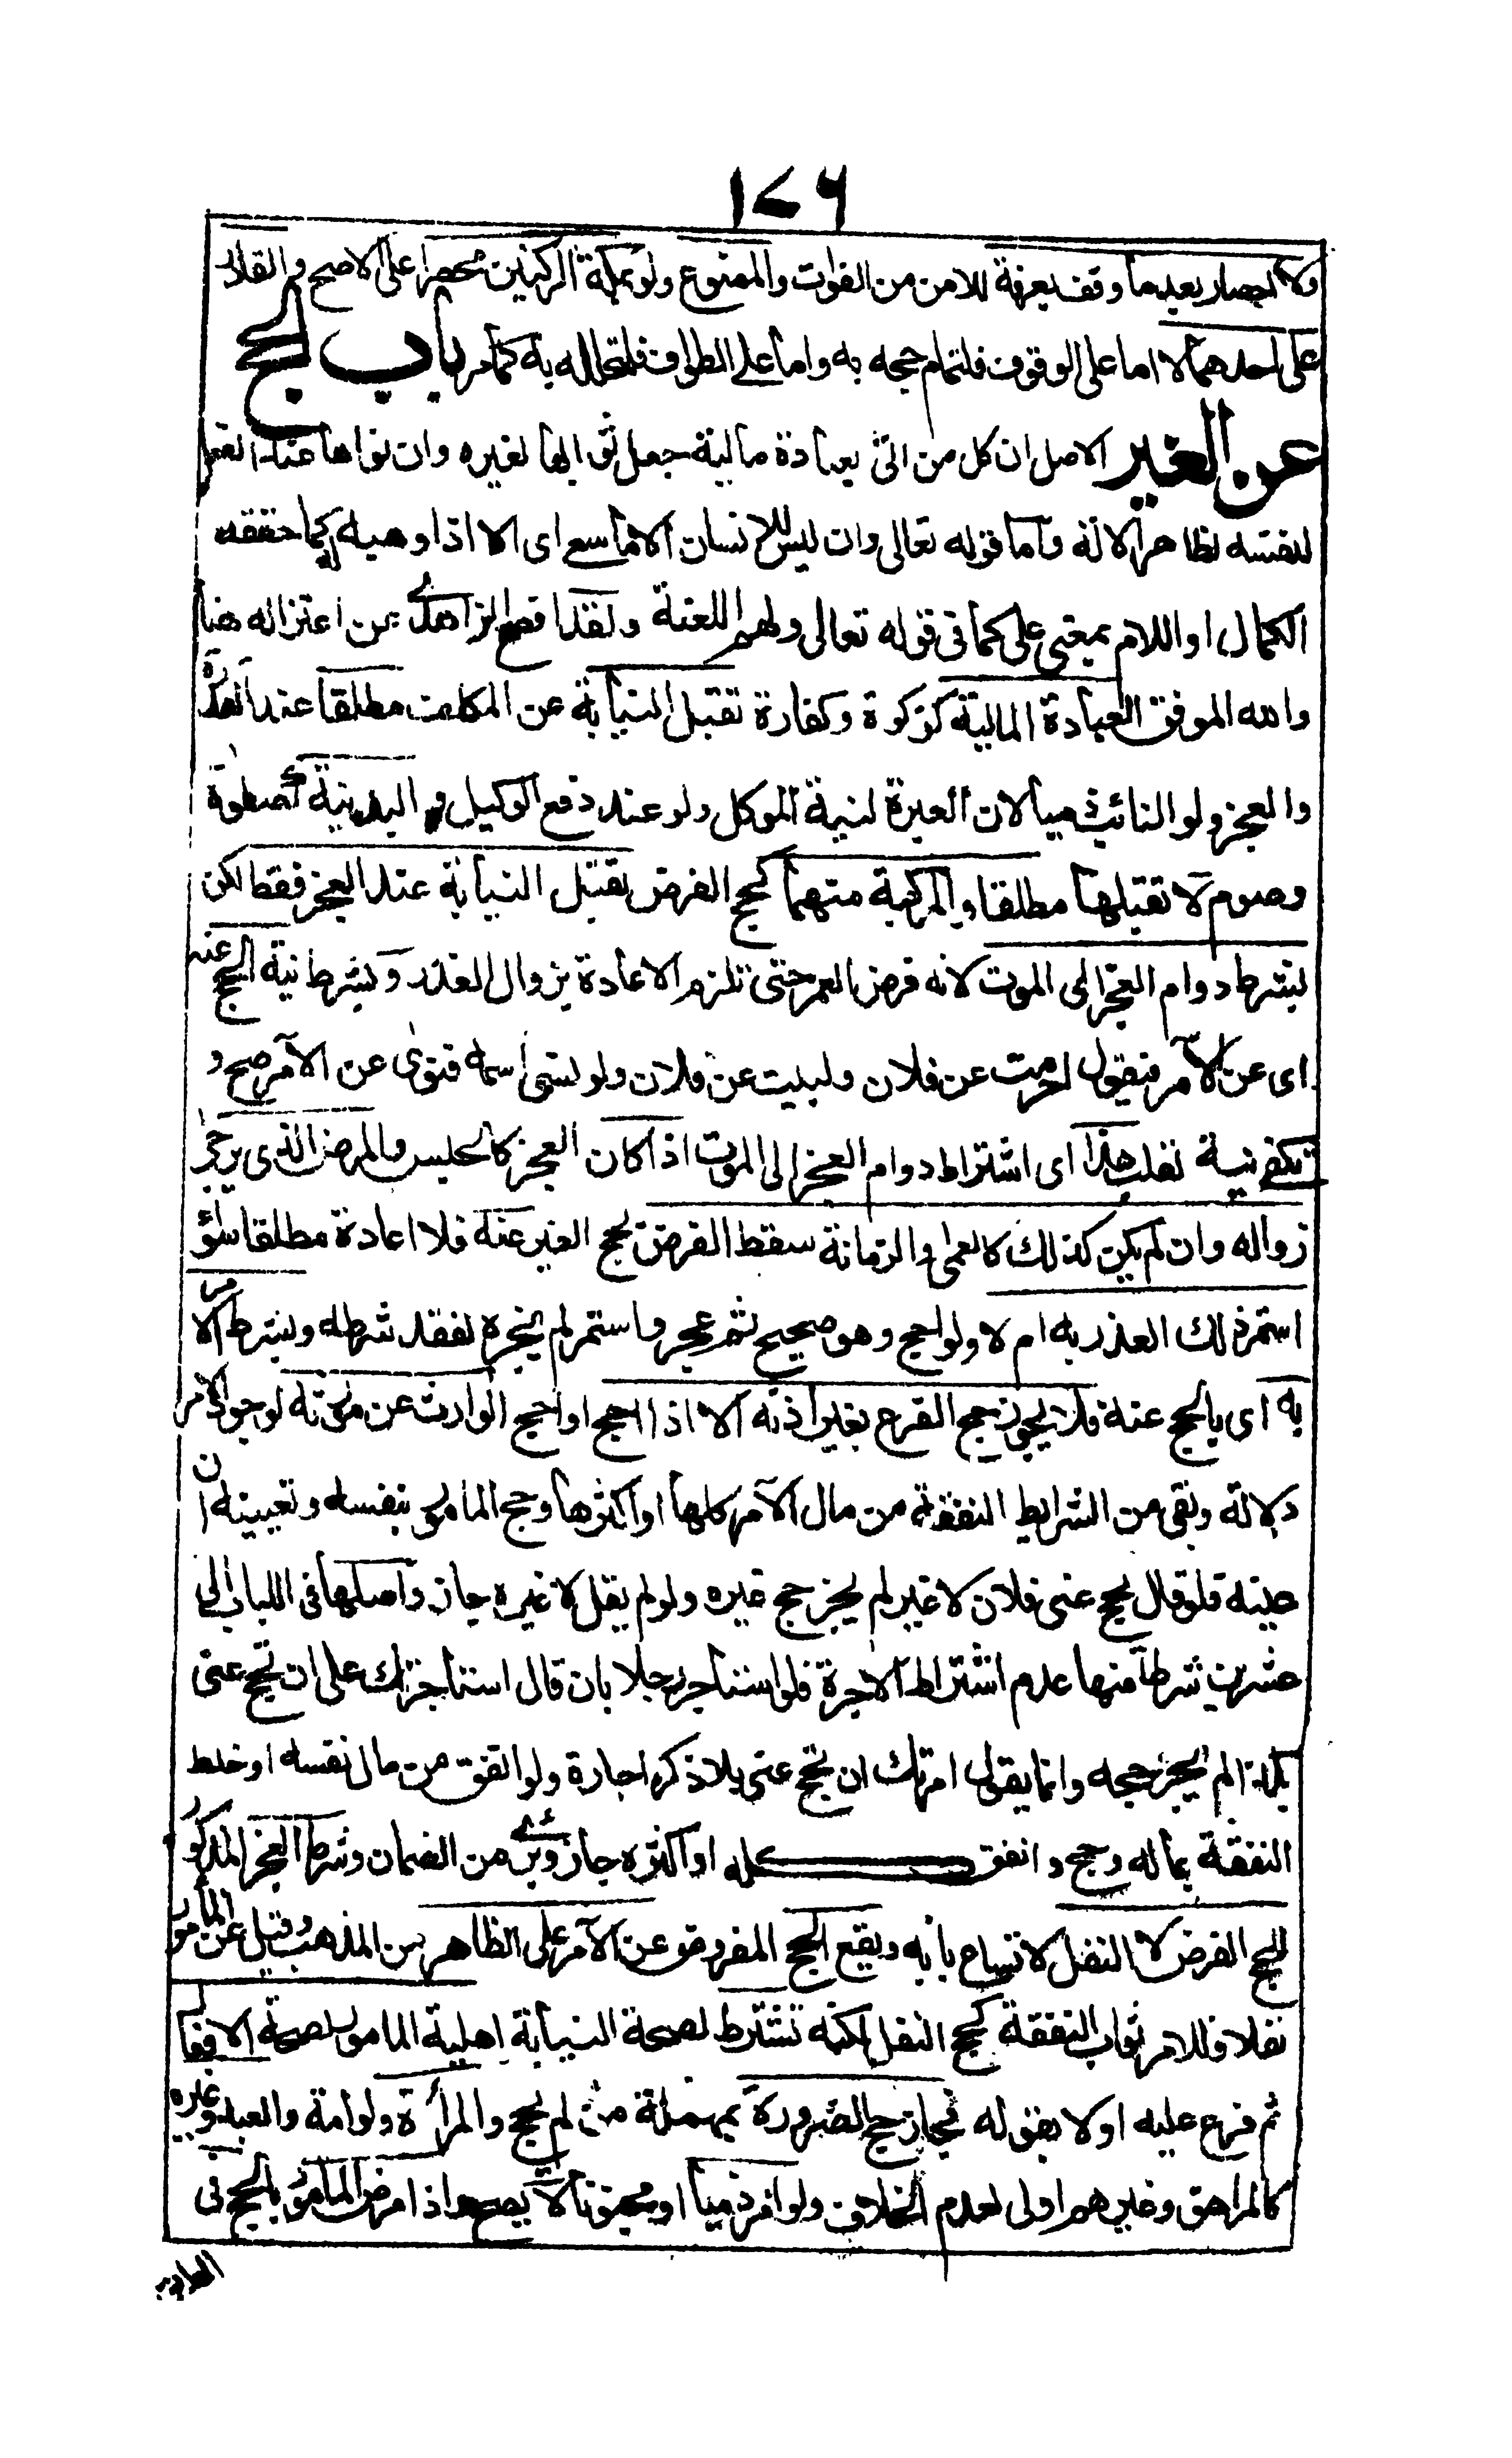 ١٧٦
ولا احصار بعد ما وقف بعرفة للامن من الفوات والممنوع ولو بمكة الركنين محصر على الاصح والقادر
على احدهما لا اما على الوقوف فلتمام حجه به واما على الطواف فلتحلله به كما مر باب الحج
عن الغير الاصل ان كل من اتى بعبادة مالية جعل ثوابها لغيره وان نواها عند الفعل
لنفسه لظاهر الادلة واما قوله تعالى وان ليس للانسان الا ما سعى اى الا اذا وهبه له كما حققه
الكمال او اللام بمعنى على كما فى قوله تعالى ولهم اللعنة ولقد افصح الزاهدى عن اعتزاله هنا
والله الموفق العبادة المالية كزكوة وكفارة تقبل النيابة عن المكلف مطلقا عند القدرة
والعجز ولو النائب ذميا لان العبرة لنية الموكل ولو عند دفع الوكيل والبدنية كصلوة
وصوم لا تقبلها مطلقا والمركبة منهما كحج الفرض تقبل النيابة عند العجز فقط لكن
بشرط دوام العجز الى الموت لانه فرض العمر حتى تلزم الاعادة بزوال العذر وبشرط نية الحج عنه
اى عن الآمر فيقول احرمت عن فلان ولبيت عن فلان ولو نسى اسمه فنوى عن الآمر صح و
تكفى نية القلب هذا اى اشتراط دوام العجز الى الموت اذا كان العجز كالحبس والمرض الذى يرجى
زواله وان لم يكن كذلك كالعمى والزمانة سقط الفرض بحج الغير عنه فلا اعادة مطلقا سواء
استمر ذلك العذر به ام لا ولو احج وهو صحيح ثم عجز واستمر لم يجزه لفقد شرطه وبشرط الامر
به اى بالحج عنه فلا يجوز حج الغير بغير اذنه الا اذا احج او حج الوارث عن مورثه لوجود الامر
دلالة وبقى من الشرايط النفقة من مال الآمر كلها او اكثرها وحج المامور بنفسه وتعيينه ان
عينه فلو قال يحج عنى فلان لا غير لم يجز حج غيره ولو لم يقل لا غيره جاز واصلها فى اللباب الى
عشرين شرطا منها عدم اشتراط الاجرة فلو استأجر رجلا بان قال استأجرتك على ان تحج عنى
بكذا لم يجز حجه وانما يقول امرتك ان تحج عنى بلا ذكر اجارة ولو انفق من مال نفسه او خلط
النفقة بماله وحج وانفق كله او اكثره جاز وبرئ من الضمان وشرط العجز المذكور
للحج الفرض لا النفل لاتساع بابه ويقع الحج المفروض عن الآمر على الظاهر من المذهب وقيل عن المأمور
نفلا وللامر ثواب النفقة كحج النفل لكنه تشترط لصحة النيابة اهلية المامور لصحة الافعال
ثم فرع عليه اولا بقوله فجاز حج الضرورة بمهملة من لم يحج والمرأة ولو امة والعبد وغيره
كالمراهق وغيرهم اولى لعدم الخلاف ولو امر ذميا او مجنونا لا يصح واذا مرض المأمور بالحج فى
الطريق